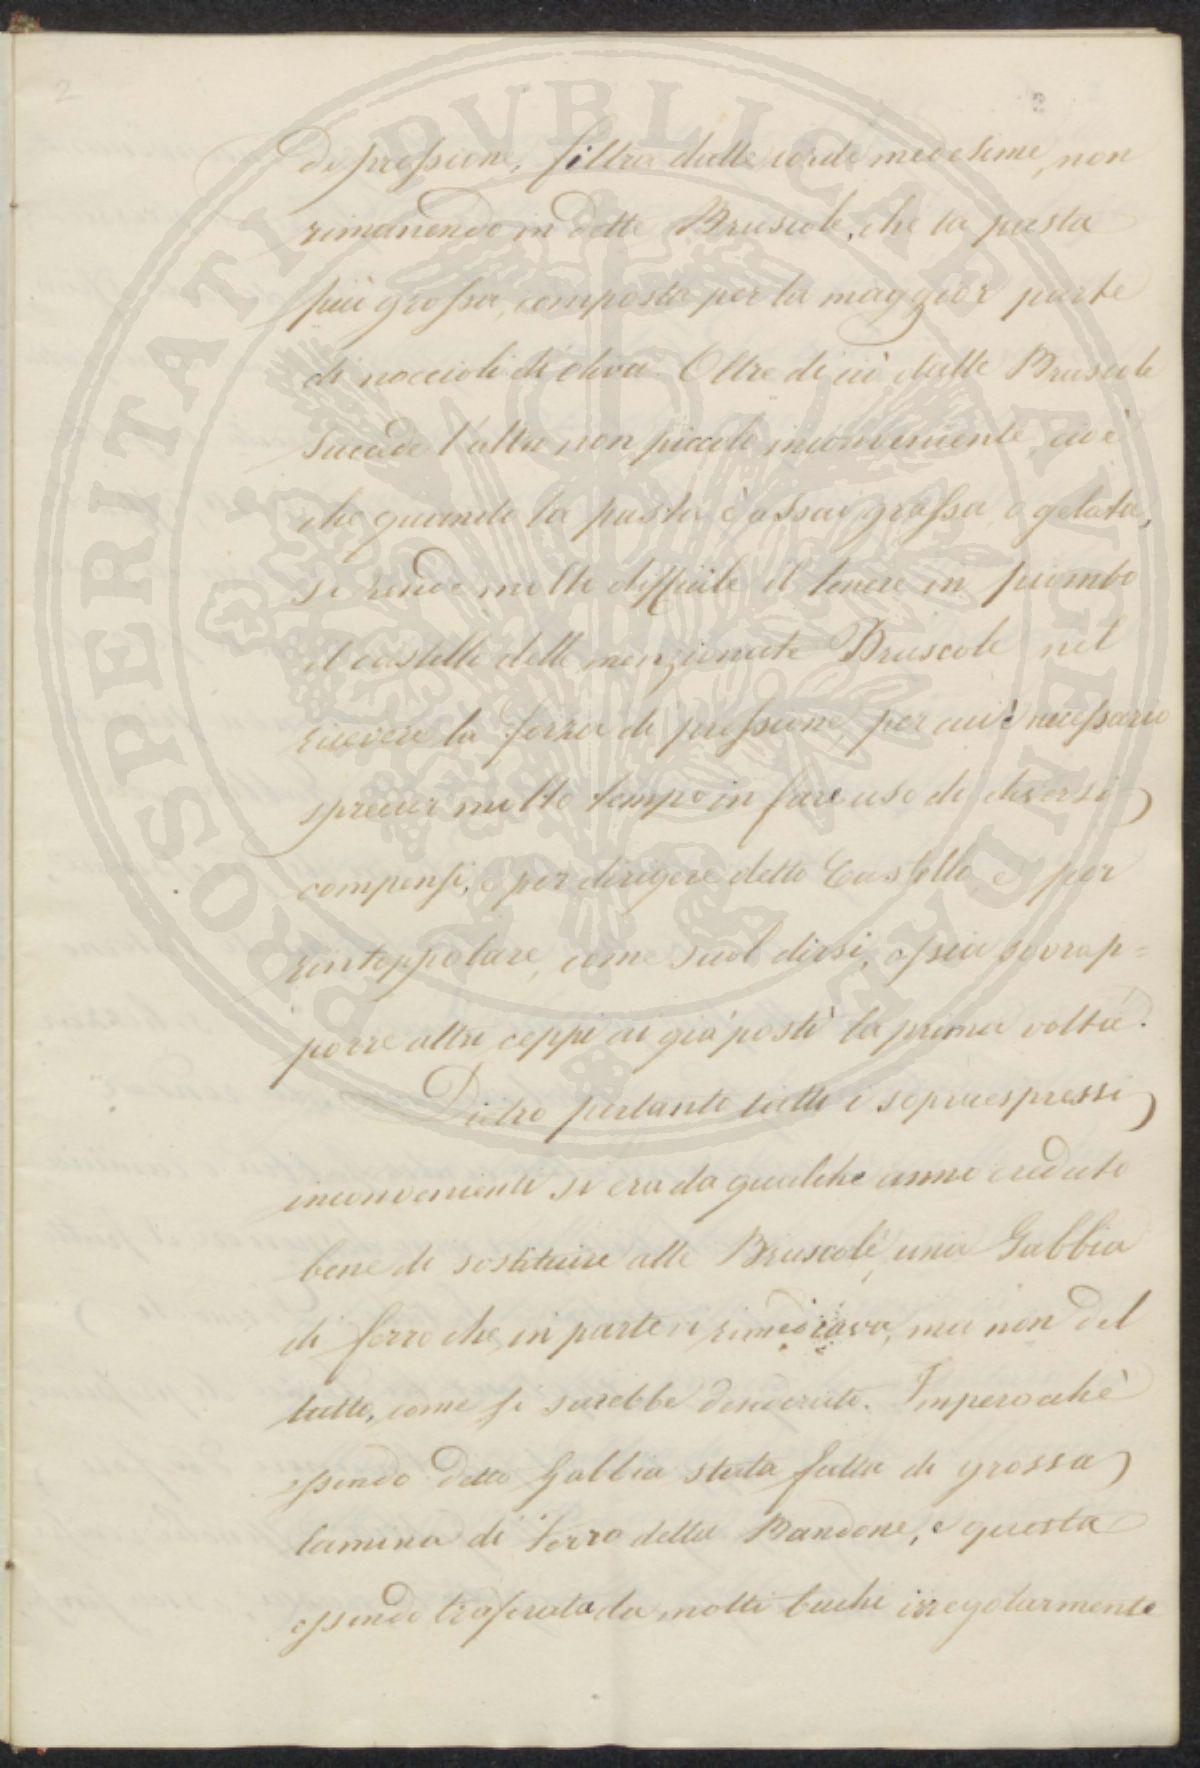 2
2
di pressione, filtra dalle corde medesime, non
rimanendo in dette Bruscole, che la pasta
più grossa, composta per la maggior parte
di noccioli di oliva. Oltre di ciò dalle Bruscole
succede l'altro non piccolo inconveniente, cioè
che quando la pasta è assai grossa, o gelata,
si rende molto difficile il tenere in piombo
il castello delle menzionate Bruscole nel
ricevere la forza di pressione, per cui è necessario
sprecar molto tempo in fare uso di diversi
compensi, e per dirigere detto Castello, e per
rintoppolare, come suol dirsi, ossia sovrap=
porre altri ceppi ai già posti la prima volta.
Dietro pertanto tutti i sopraespressi
inconvenienti si era da qualche anno creduto
bene di sostituire alle Bruscole, una Gabbia
di ferro che in parte vi rimediava, ma non del
tutto, come si sarebbe desiderato. Imperocchè
essendo detta Gabbia stata fatta di grossa
lamina di ferro detta Bandone, e questa
essendo traforata da molti buchi irregolarmente
PROSPERITATI PVBLICAE AVGENDAE